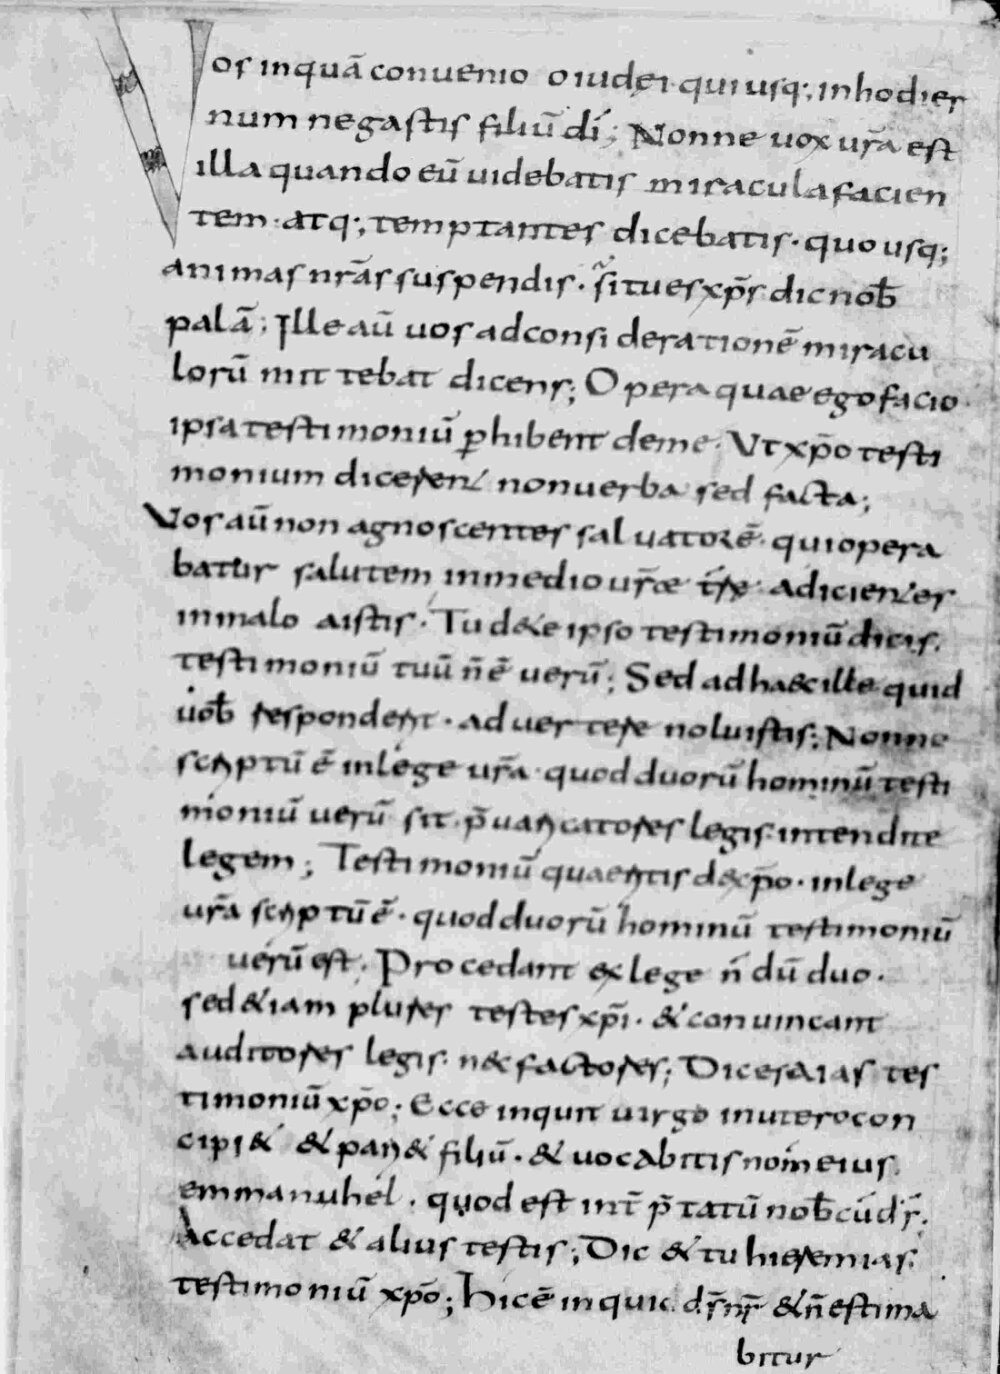 Vos inquā conuenio o iudęi qui usq; in hodier
num negastis filiū dī; Nonne uox ur̄a est
illa quando eū uidebatis miracula facien
tem. atq; temptantes dicebatis. quo usq;
animas nr̄as suspendis. si tu es xp̄s dic nob̄
palā; Ille aū uos ad considerationē miracu
lorū mittebat dicens; Opera quae ego facio
ipsa testimoniū ꝑhibent de me. Ut xp̄o testi
monium dicerent non uerba sed facta;
Vos aū non agnoscentes saluatorē. qui opera
batur salutem in medio ur̄ae tr̄e adicientes
in malo aistis. Tu de te ipso testimoniū dicis.
testimoniū tuū n̄ ē uerū; Sed ad haec ille quid
uob̄ responderit. aduertere noluistis; Nonne
scriptū ē in lege ur̄a quod duorū hominū testi
moniū uerū sit. p̄uaricatores legis intendite
legem; Testimoniū quaeritis de xp̄o. in lege
ur̄a scriptū ē. quod duorū hominū testimoniū
uerū est. Procedant ex lege n̄ dū duo.
sed &iam plures testes xp̄i. & conuincant
auditores legis. nec factores; Dic esaias tes
timoniū xp̄o; Ecce inquit uirgo in utero con
cipi& & pari& filiū. & uocabitis nomen eius
emmanuhel. quod est int̄p̄tatū nob̄cū ds̄.
Accedat & alius testis; Dic & tu hieremias
testimoniū xp̄o; Hic ē inquit ds̄ nr̄ & n̄ estima
bitur